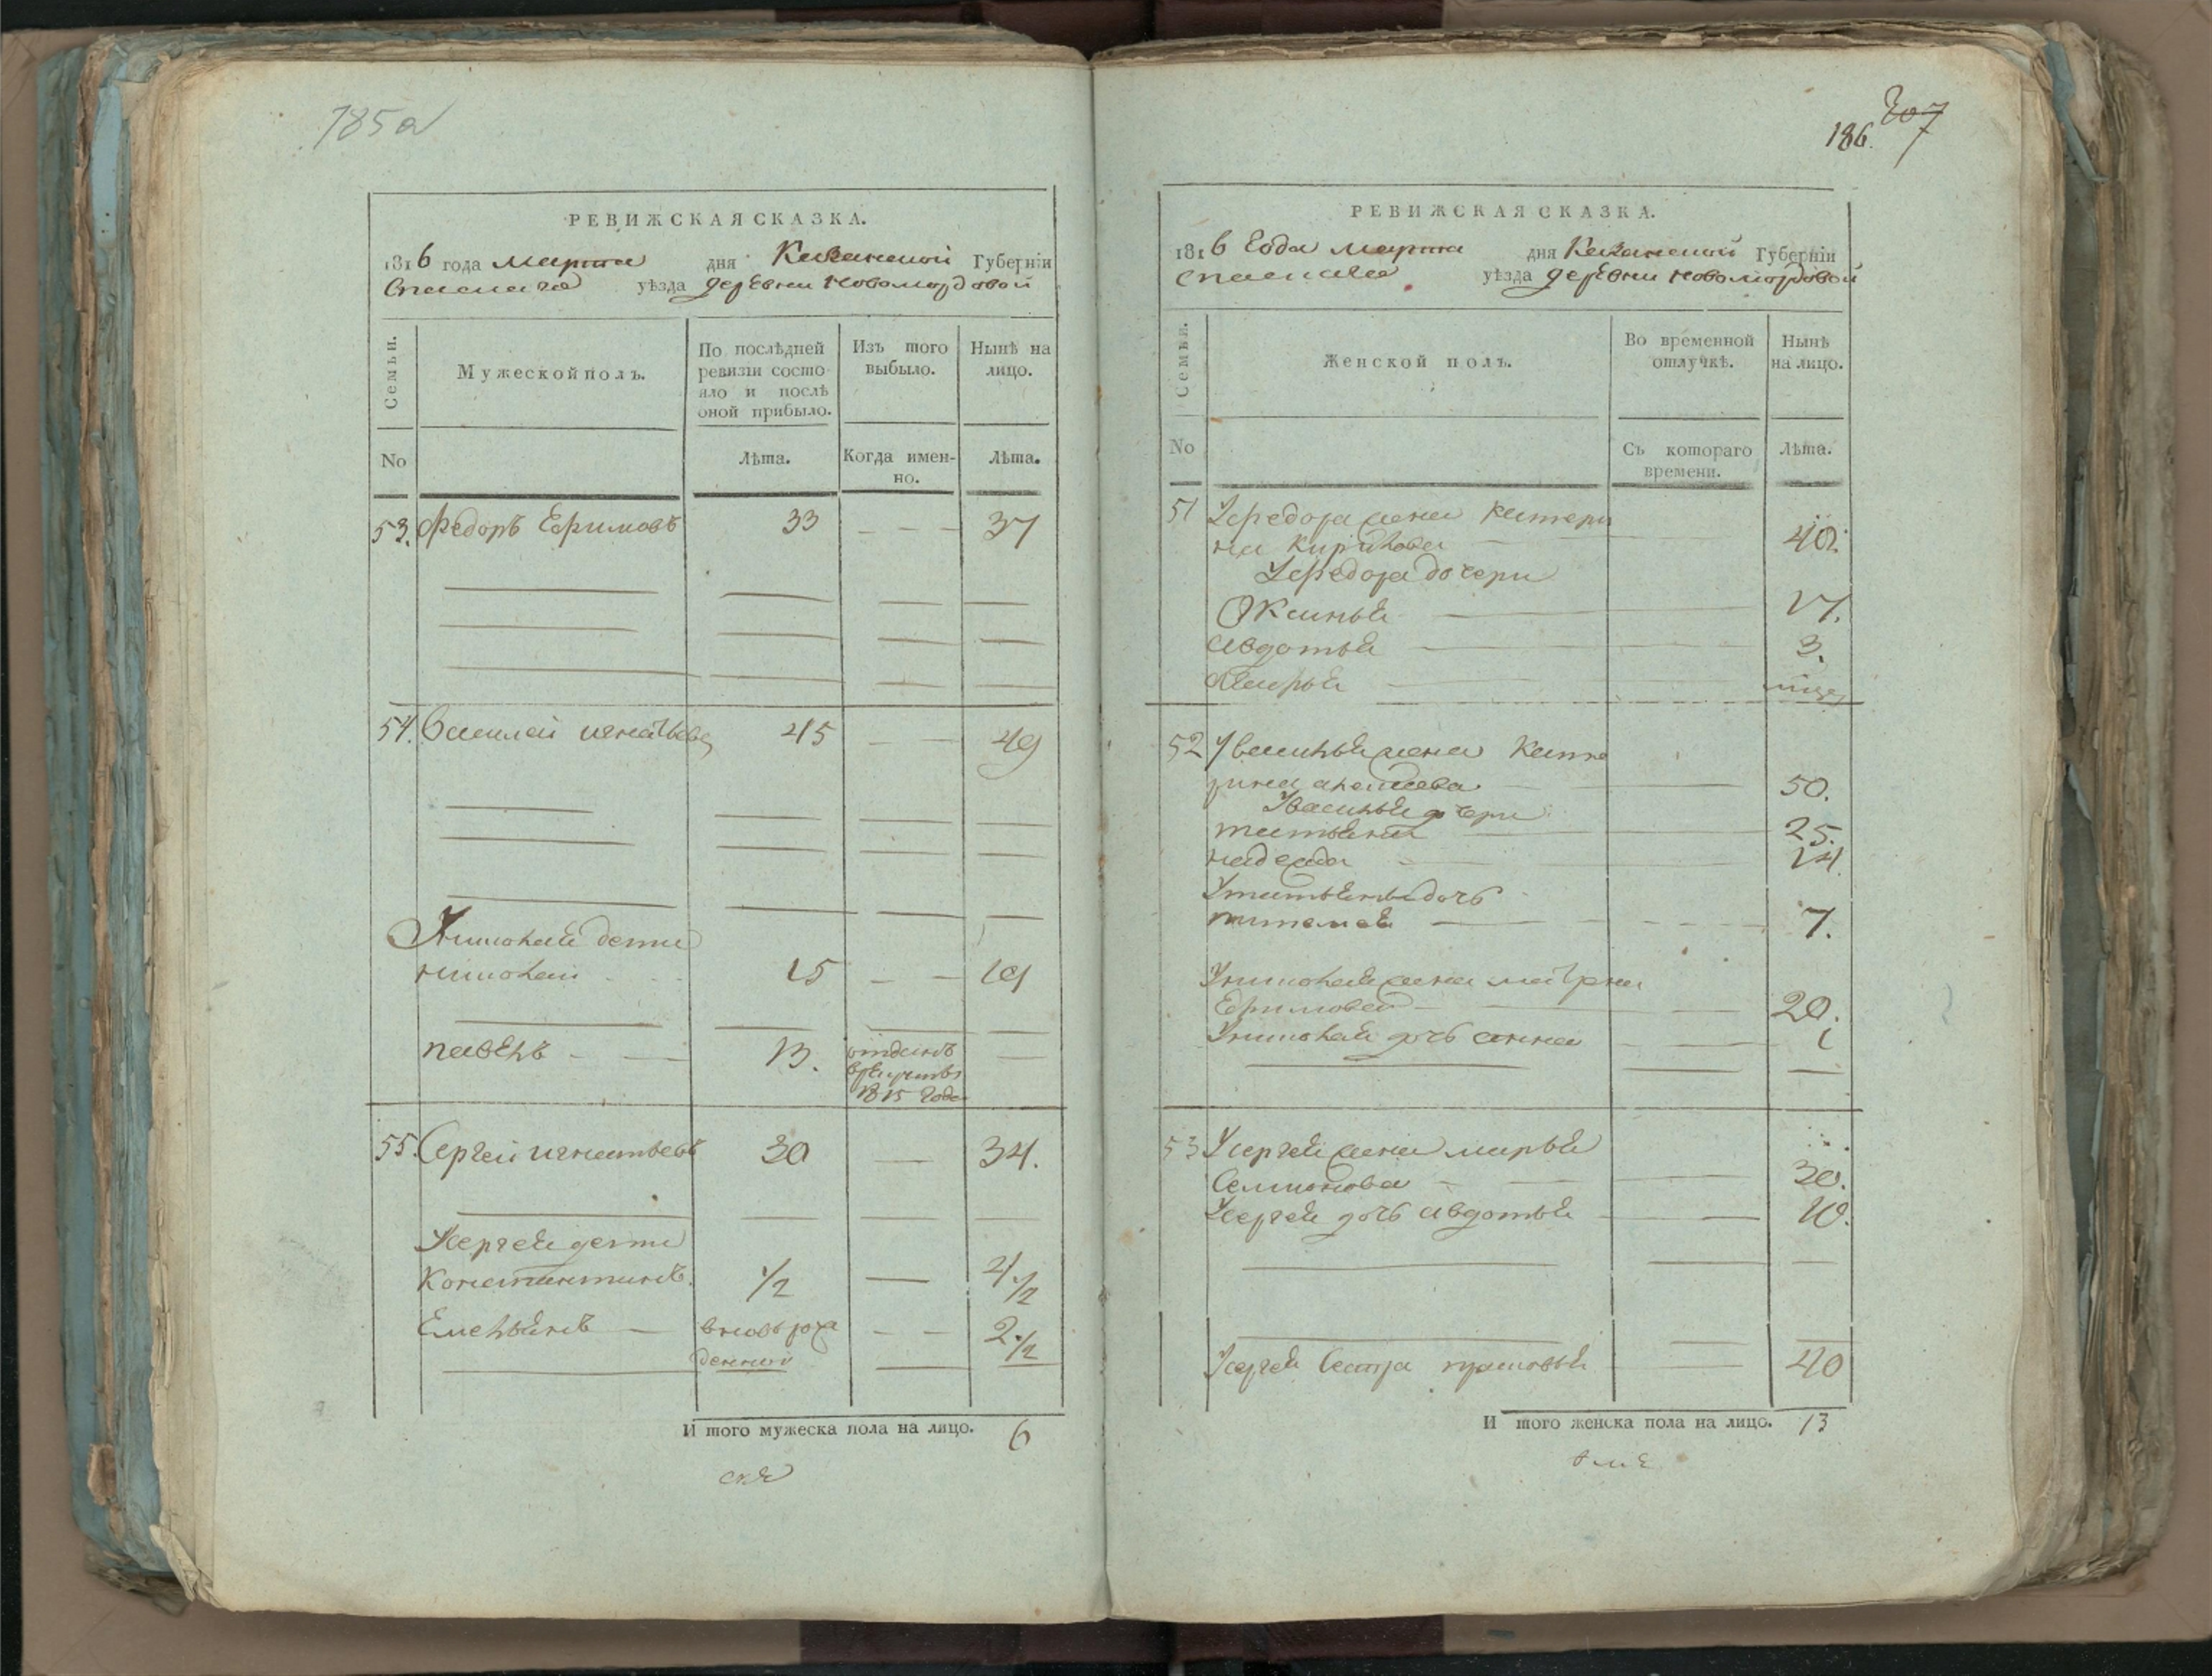 785а
РЕВИЖСКАЯ СКАЗКА.
1816 года марта дня Казанской Губерніи
Спаскаго уѣзда деревни Новомордовой
Семьи.
Мужеской полъ.
По послѣдней
ревизіи состо-
яло и послѣ
оной прибыло.
Изъ того
выбыло.
Нынѣ на
лицо.
No
Лѣта.
Когда имен-
но.
Лѣта.
53. Федоръ Ефимовъ 33 37
54. Василей игнатьевъ 45 49
У николая дети
николай 15 19
павелъ 13. отданъ
в рекруты
1815 года
55. Сергей игнатьевъ 30 34.
У сергея дети
Констянтинъ 1/2 4 1/2
Емельянъ вновь рож
денной 2 1/2
И того мужеска пола на лицо. 6
186. 207
РЕВИЖСКАЯ СКАЗКА.
1816 года марта дня Казанской Губерніи
Спаскаго уѣзда деревни Новомордовой
Семьи.
Женской полъ.
Во временной
отлучкѣ.
Нынѣ
на лицо.
No
Съ котораго
времени.
Лѣта.
51 У федора жена Катери
на Кирилова 40.
У федора дочери
Оксинья 17.
Авдотья 3.
Марья
52 У василья жена Кате
рина 50.
У василья дочери
татьяна 25.
надежда 14.
У татьяны дочь
7.
У николая жена матрена
Ефимова 20.
У николая дочь анна 1
53 У сергея жена марья
Семионова 30.
У сергея дочь авдотья 10.
У сергея сестра прасковья 40
И того женска пола на лицо. 13